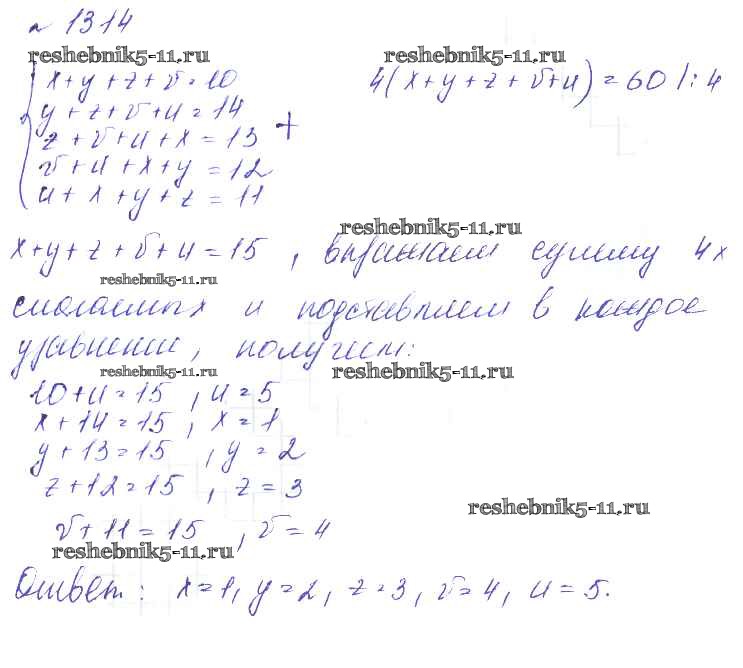 № 1314
reshebnik5-11.ru reshebnik5-11.ru
x+y+z+v=10 4(x+y+z+v+u)=60 /:4
y+z+v+u=14
z+v+u+x=13 +
v+u+x+y=12
u+x+y+z=11
reshebnik5-11.ru
x+y+z+v+u=15, выражаем сумму 4х
reshebnik5-11.ru
слагаемых и подставляем в каждое
уравнении, получим:
reshebnik5-11.ru reshebnik5-11.ru
10+u=15, u=5
x+14=15, x=1
y+13=15, y=2
z+12=15, z=3
reshebnik5-11.ru
v+11=15, v=4
reshebnik5-11.ru
Ответ: x=1, y=2, z=3, v=4, u=5.